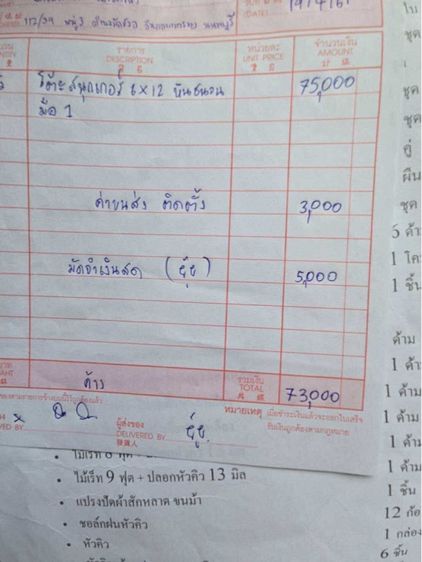 112/39 หมู่ 3
(DATE) 19/4/61
รายการ
DESCRIPTION
หน่วยละ
UNIT PRICE
จำนวนเงิน
AMOUNT
โต๊ะสนุกเกอร์ 6 x 12 หินชนวน 75,000
มือ 1
ค่าขนส่ง ติดตั้ง 3,000
มัดจำเงินสด 5,000
ค้าง
รวมเงิน
TOTAL
73,000
ผู้ส่งของ
DELIVERED BY
หมายเหตุ เมื่อชำระเงินแล้วจะออกใบเสร็จ
รับเงินถูกต้องตามกฎหมาย
• ไม้เร็ท 9 ฟุต + ปลอกหัวคิว 13 มิล
• แปรงปัดผ้าสักหลาด ขนม้า
• ชอล์กฝนหัวคิว
• หัวคิว
ใบ
ชุด
ชุด
ชุด
คู่
ผืน
ชุด
1 ชิ้น
ค้าม
1 ค้าม
1 ค้าม
1 ค้าม
1 ค้าม
1 ชิ้น
12 ก้อ
1 กล่อง
6 ชิ้น